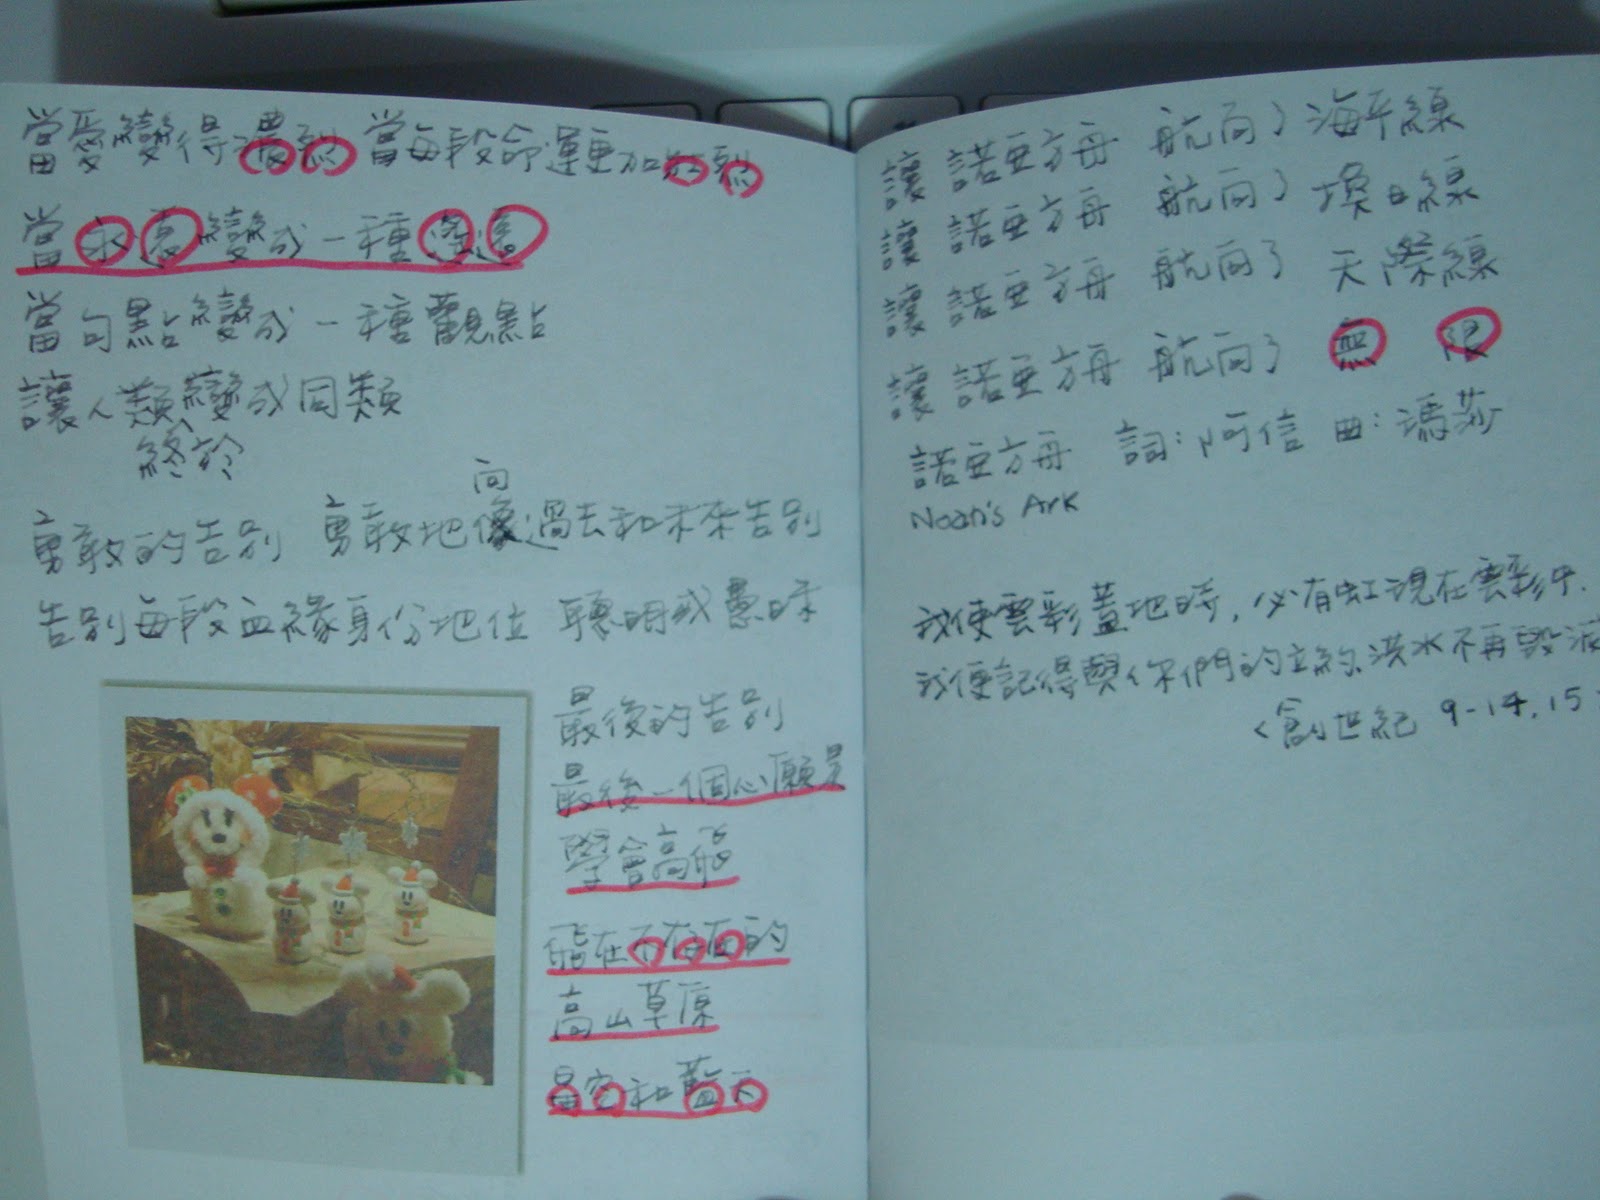 當愛變得濃烈 當每段命運更加烈
當永遠變成一種遙遠
當句點變成一種觀點
讓人類變成同類
終於
向
勇敢的告別 勇敢地像過去和未來告別
告別每段血緣身份地位 聰明或愚昧
最後的告別
最後一個心願是
學會高飛
飛在不存在的
高山草原
星空和藍天
讓 諾亞方舟 航向了 海平線
讓 諾亞方舟 航向了 換日線
讓 諾亞方舟 航向了 天際線
讓 諾亞方舟 航向了 無 限
諾亞方舟 詞:阿信 曲:瑪莎
Noah's Ark
我使雲彩蓋地時,必有虹現在雲彩中.
我便記得與你們的立約.洪水不再毀滅
<創世紀 9-14,15>